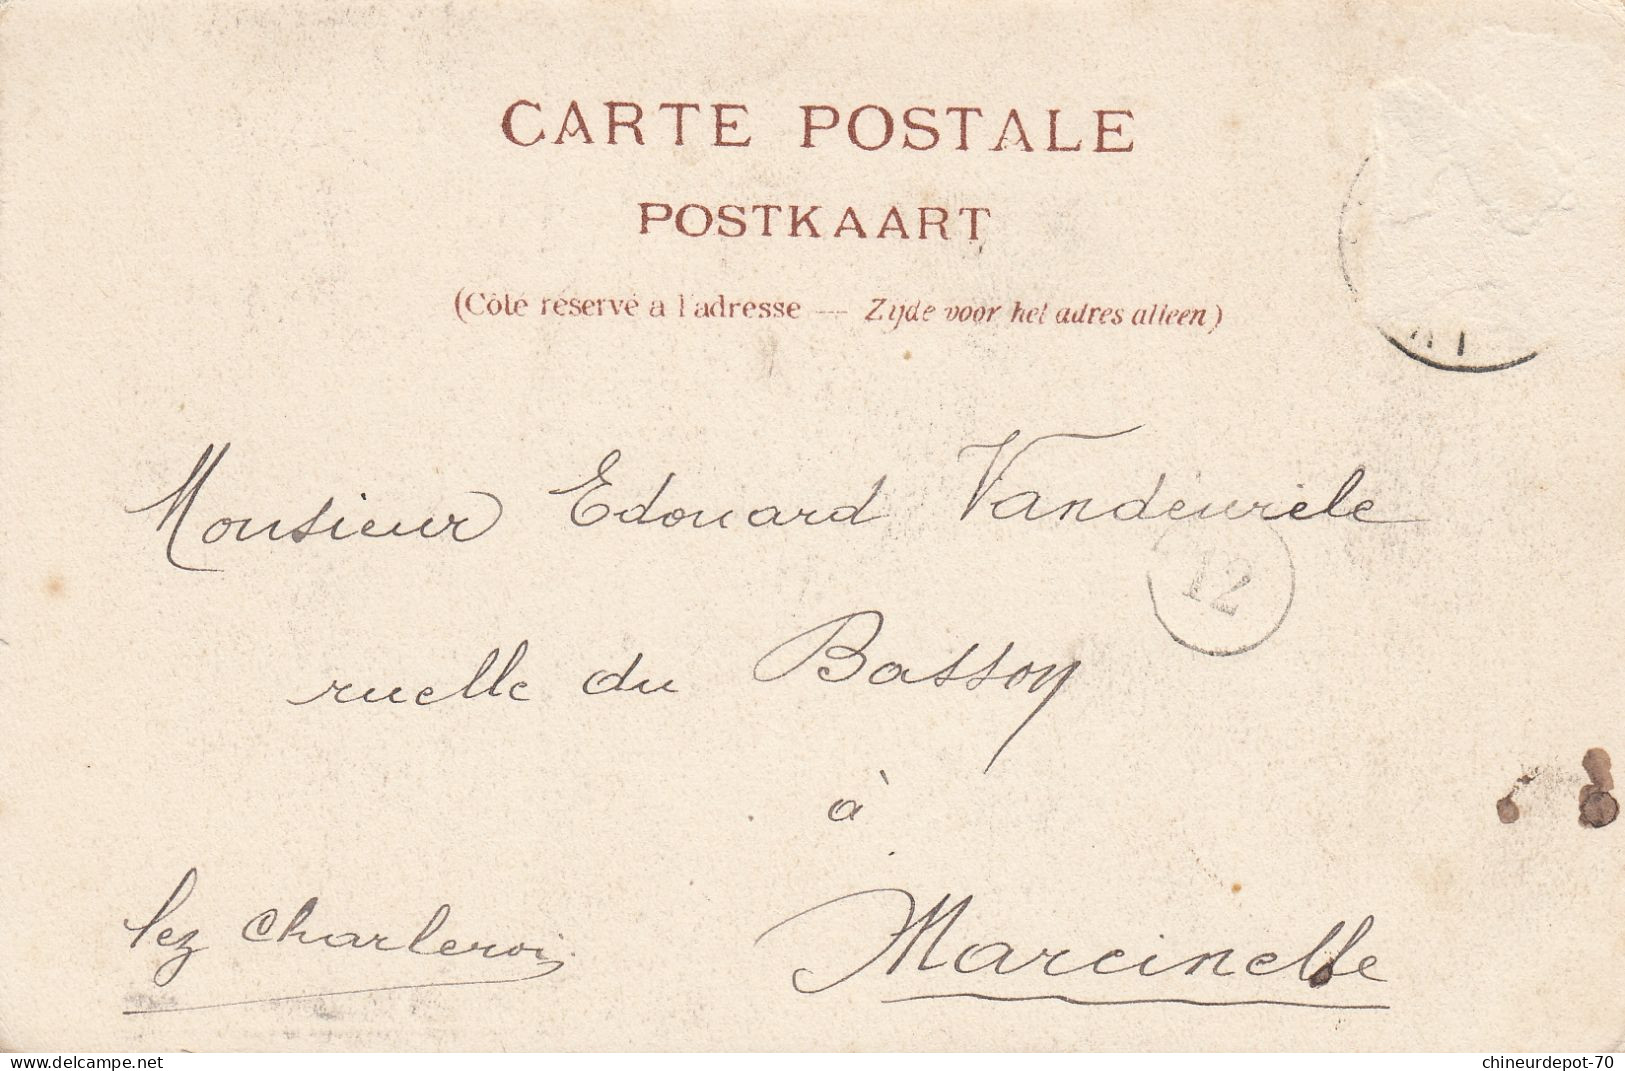 CARTE POSTALE
POSTKAART
(Côté réservé a l'adresse — Zijde voor het adres alleen)
Monsieur Edouard
12
ruelle du Bassoy
à
lez Charleroi
Marcinelle
www.delcampe.net
chineurdepot-70